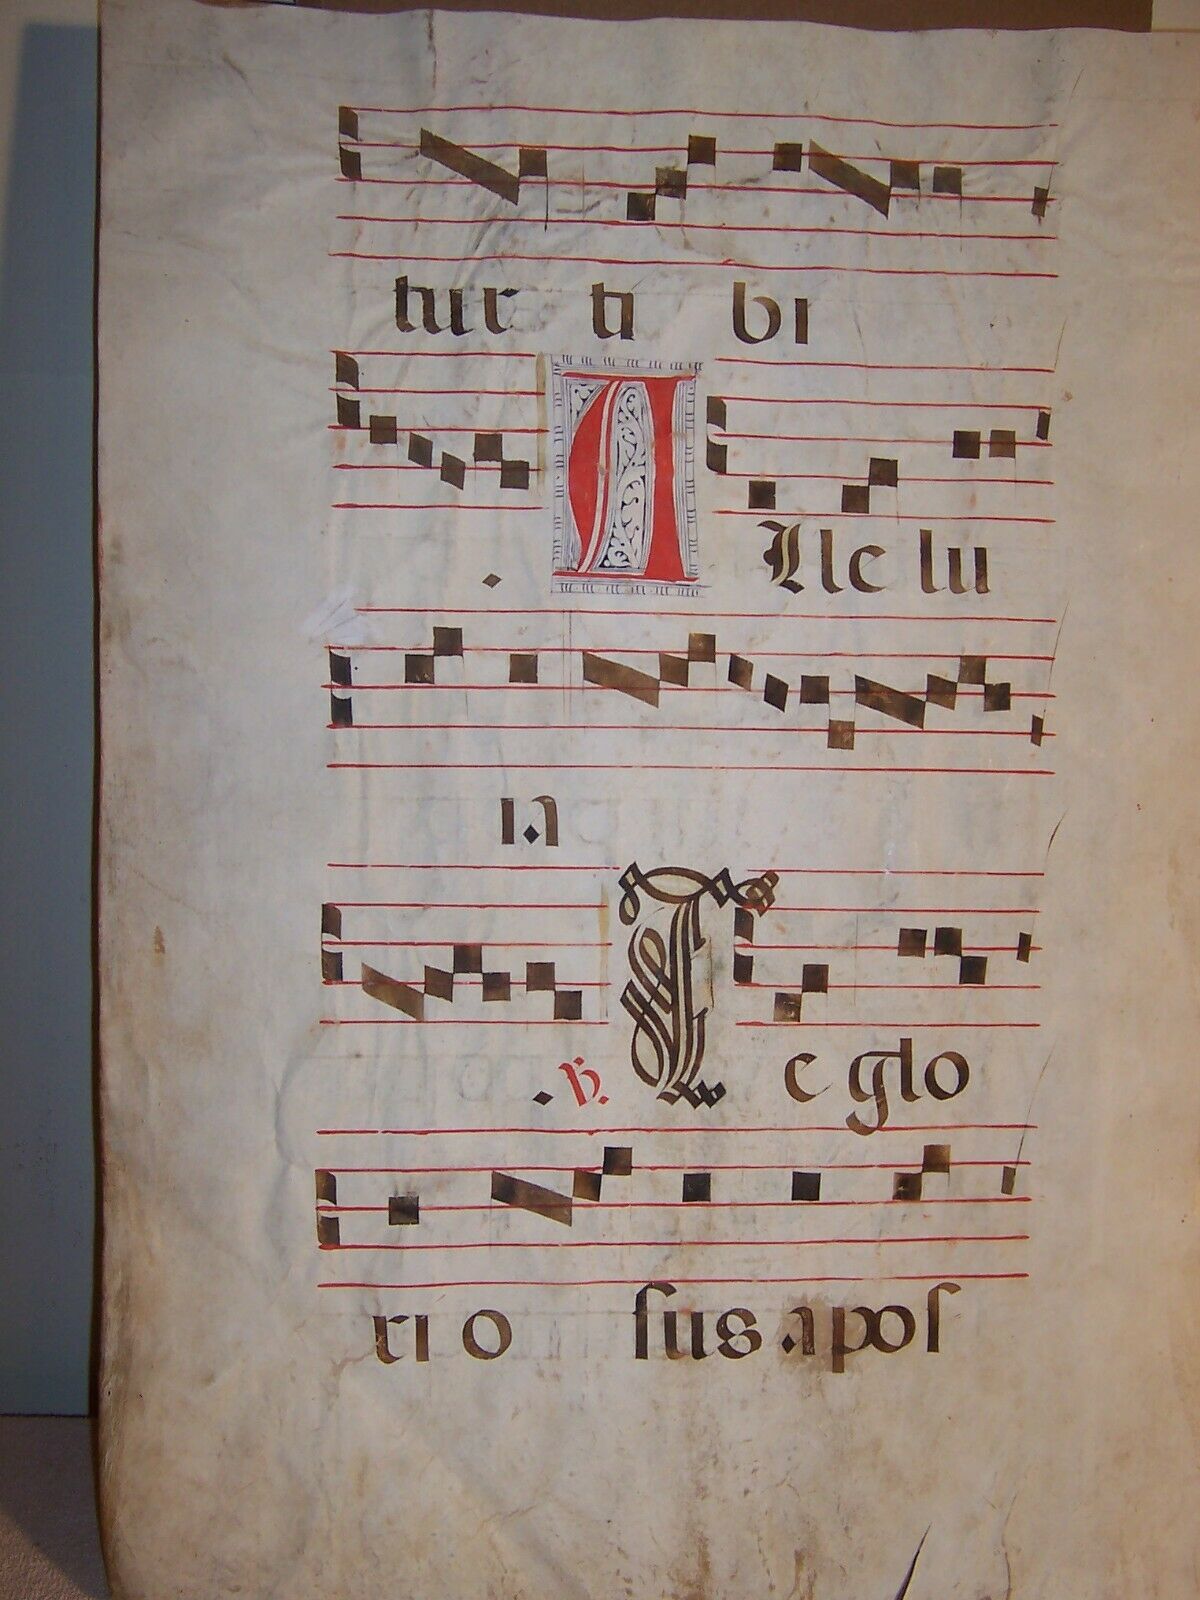 tur ti bi
. A Lle lu
ia
. ℟. T e glo
ri o sus apos